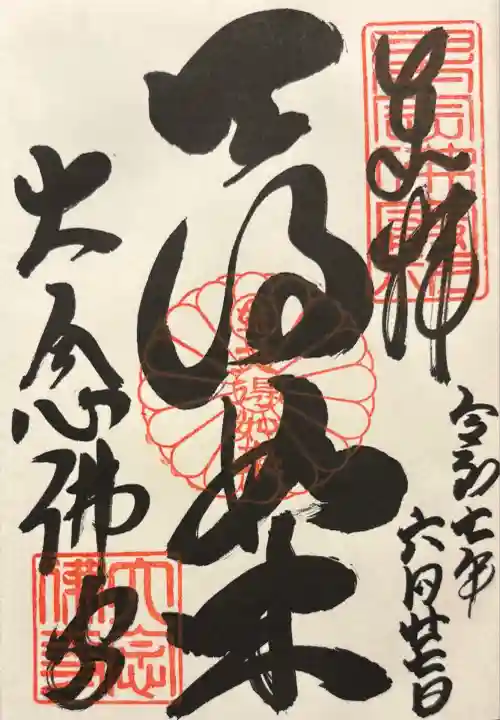 奉拝
令和七年
六月廿七日
天得如来
大念佛寺
大念佛寺